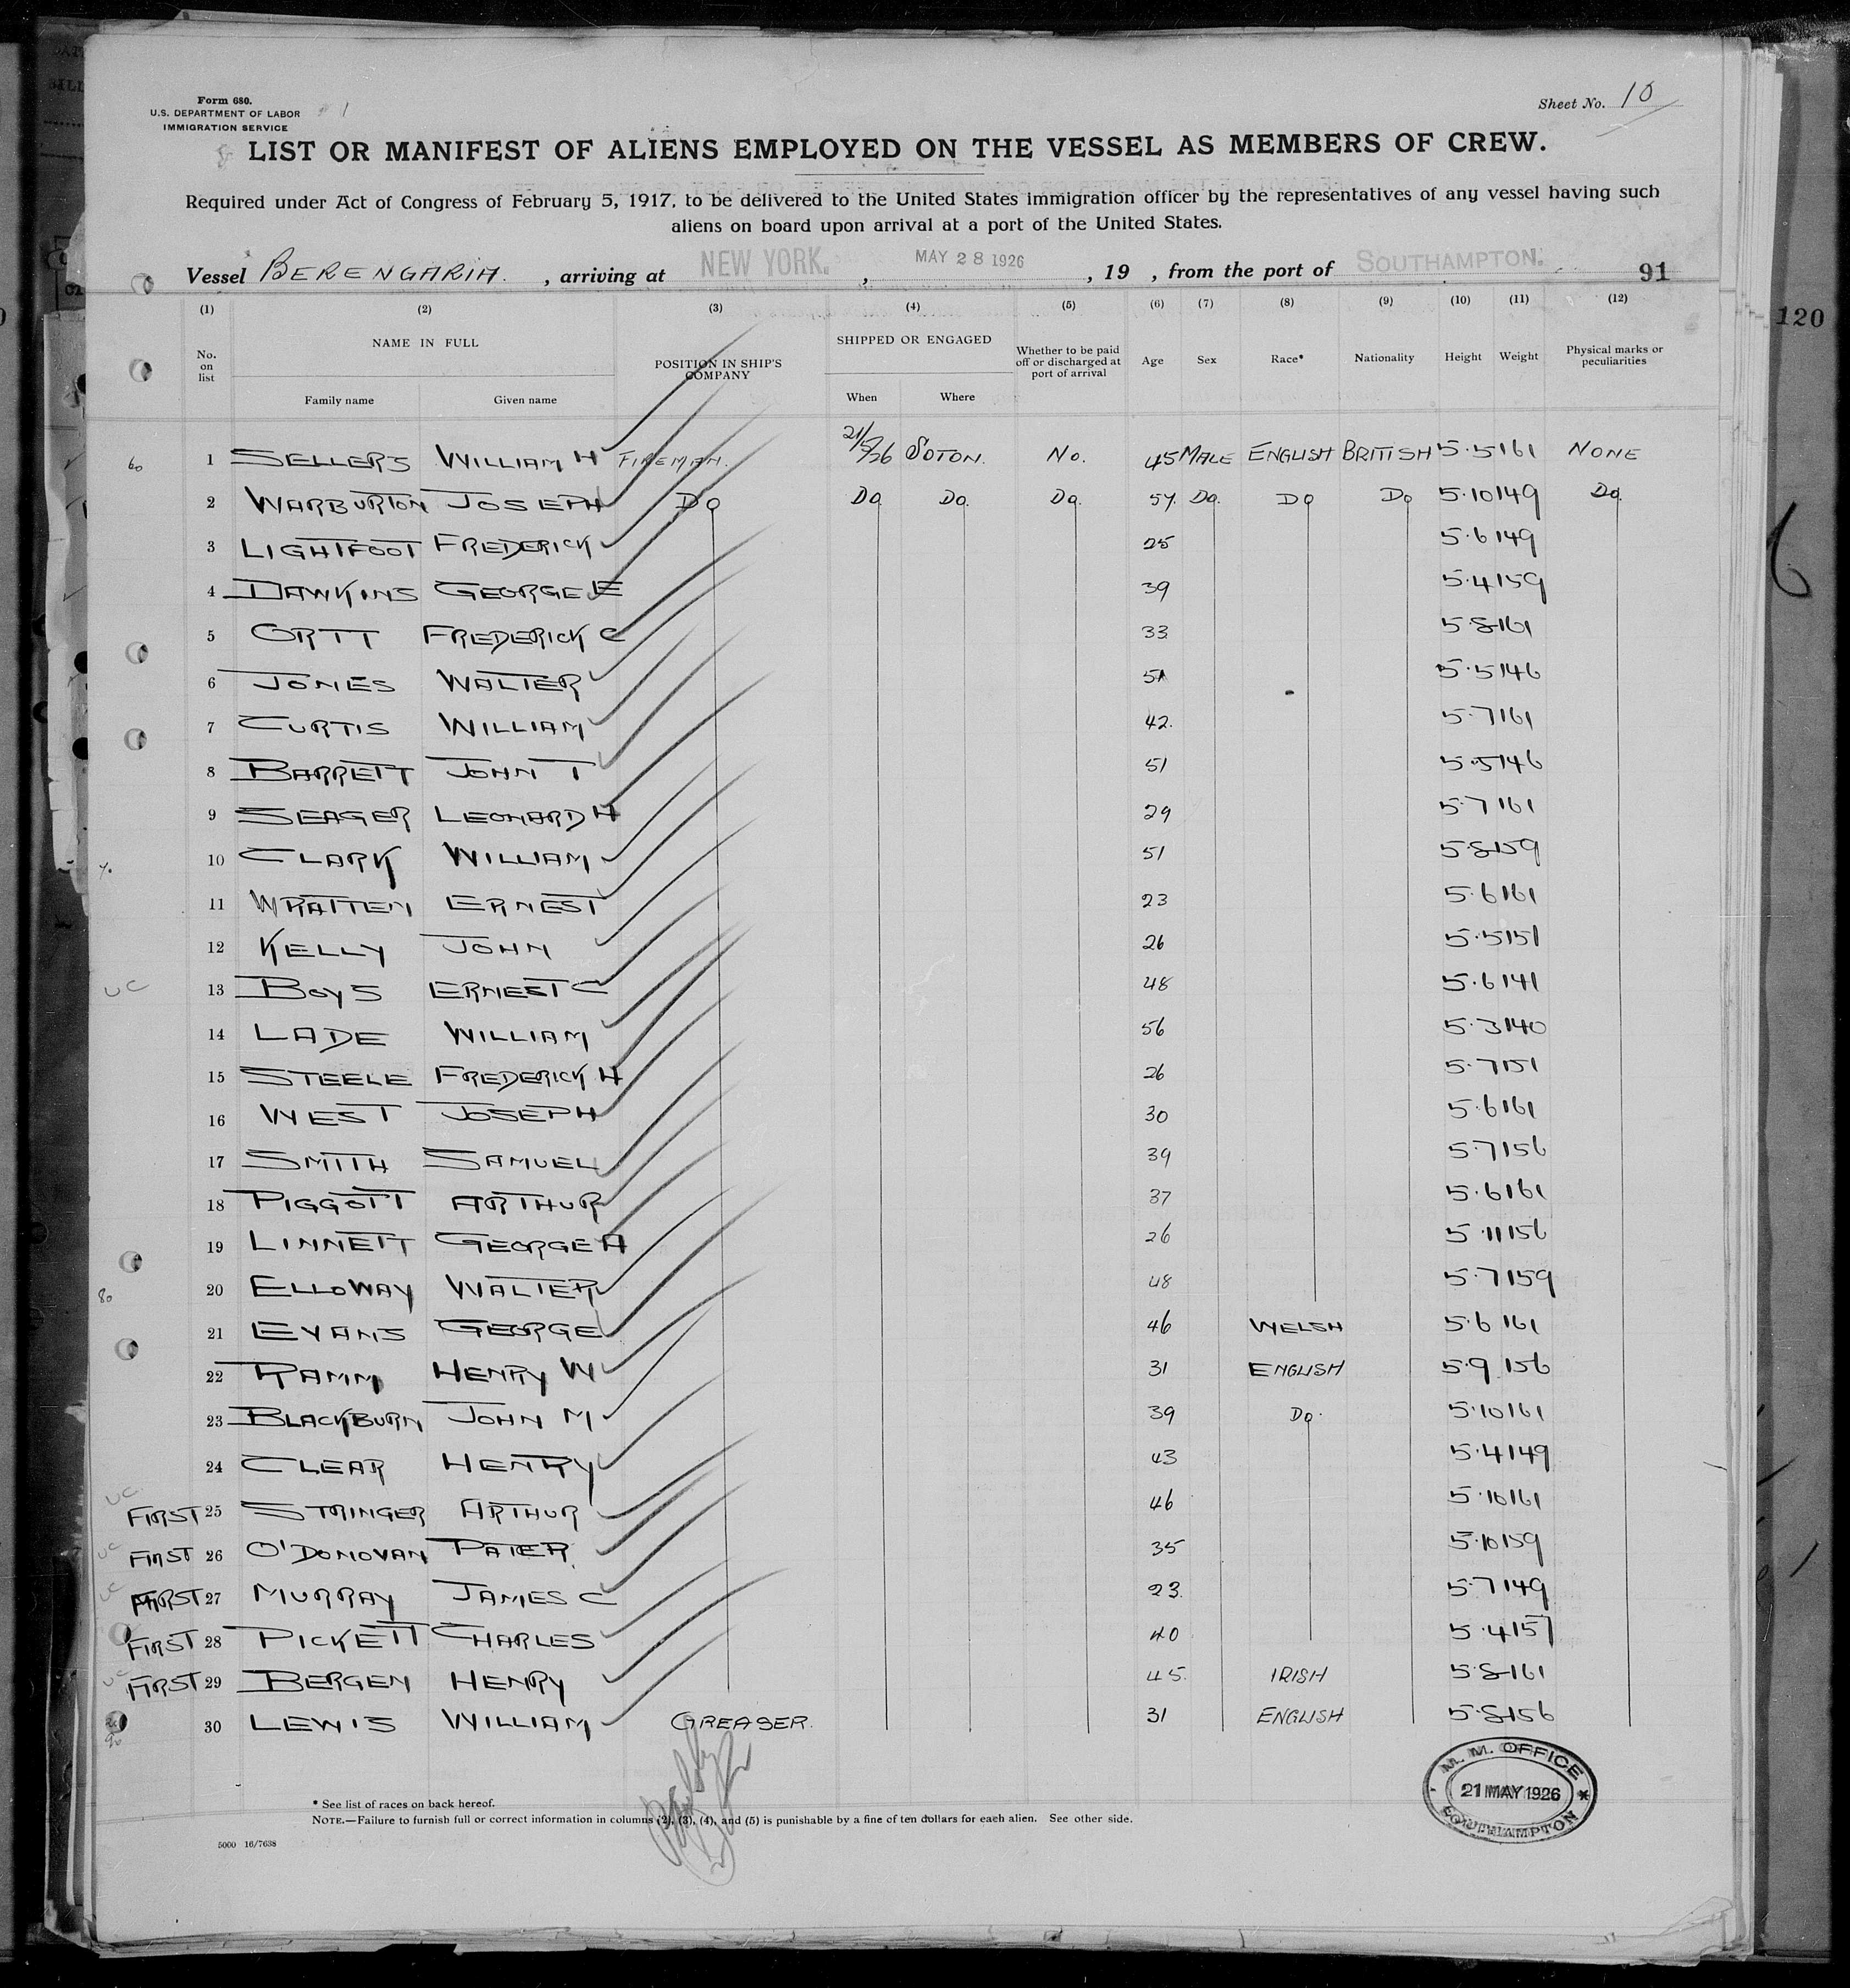 Form 680.
U.S. DEPARTMENT OF LABOR
IMMIGRATION SERVICE
Sheet No. 10
LIST OR MANIFEST OF ALIENS EMPLOYED ON THE VESSEL AS MEMBERS OF CREW.
Required under Act of Congress of February 5, 1917, to be delivered to the United States immigration officer by the representatives of any vessel having such
aliens on board upon arrival at a port of the United States.
Vessel BERENGARIA. , arriving at NEW YORK. , MAY 28 1926 , 19 , from the port of SOUTHAMPTON. 91
120
(1) (2) (3) (4) (5) (6) (7) (8) (9) (10) (11) (12)
No. on list NAME IN FULL Family name Given name POSITION IN SHIP'S COMPANY SHIPPED OR ENGAGED When Where Whether to be paid off or discharged at port of arrival Age Sex Race* Nationality Height Weight Physical marks or peculiarities
60 1 SELLERS WILLIAM H FIREMAN. 21/5/26 SOTON. No. 45 MALE ENGLISH BRITISH 5.5 161 NONE
2 WARBURTON JOSEPH DO DO. DO. DO. 57. DO. DO DO 5.10 149 DO.
3 LIGHTFOOT FREDERICK 25 5.6 149
4 DAWKINS GEORGE E 39 5.4 159
5 ORTT FREDERICK C 33 5.8 161
6 JONES WALTER 51 5.5 146
7 CURTIS WILLIAM 42. 5.7 161
8 BARRETT JOHN T 51 5.5 146
9 SEAGER LEONARD H 29 5.7 161
10 CLARK WILLIAM 51 5.8 159
11 WRATTEN ERNEST 23 5.6 161
12 KELLY JOHN 26 5.5 151
UC 13 BOYS ERNEST C 48 5.6 141
14 LADE WILLIAM 56 5.3 140
15 STEELE FREDERICK H 26 5.7 151
16 WEST JOSEPH 30 5.6 161
17 SMITH SAMUEL 39 5.7 156
18 PIGGOTT ARTHUR 37 5.6 161
19 LINNETT GEORGE A 26 5.11 156
80 20 ELLOWAY WALTER 48 5.7 159
21 EVANS GEORGE 46 WELSH 5.6 161
22 RAMM HENRY W 31 ENGLISH 5.9 156
23 BLACKBURN JOHN M 39 DO. 5.10 161
24 CLEAR HENRY 43 5.4 149
UC FIRST 25 STRINGER ARTHUR 46 5.10 161
UC FIRST 26 O'DONOVAN PATER 35 5.10 159
UC FIRST 27 MURRAY JAMES C 23. 5.7 149
FIRST 28 PICKETT CHARLES 40 5.4 157
UC FIRST 29 BERGEN HENRY 45. IRISH 5.8 161
90 30 LEWIS WILLIAM GREASER. 31 ENGLISH 5.8 156
M. M. OFFICE
21 MAY 1926
SOUTHAMPTON
* See list of races on back hereof.
NOTE.—Failure to furnish full or correct information in columns (2), (3), (4), and (5) is punishable by a fine of ten dollars for each alien. See other side.
5000 16/7638